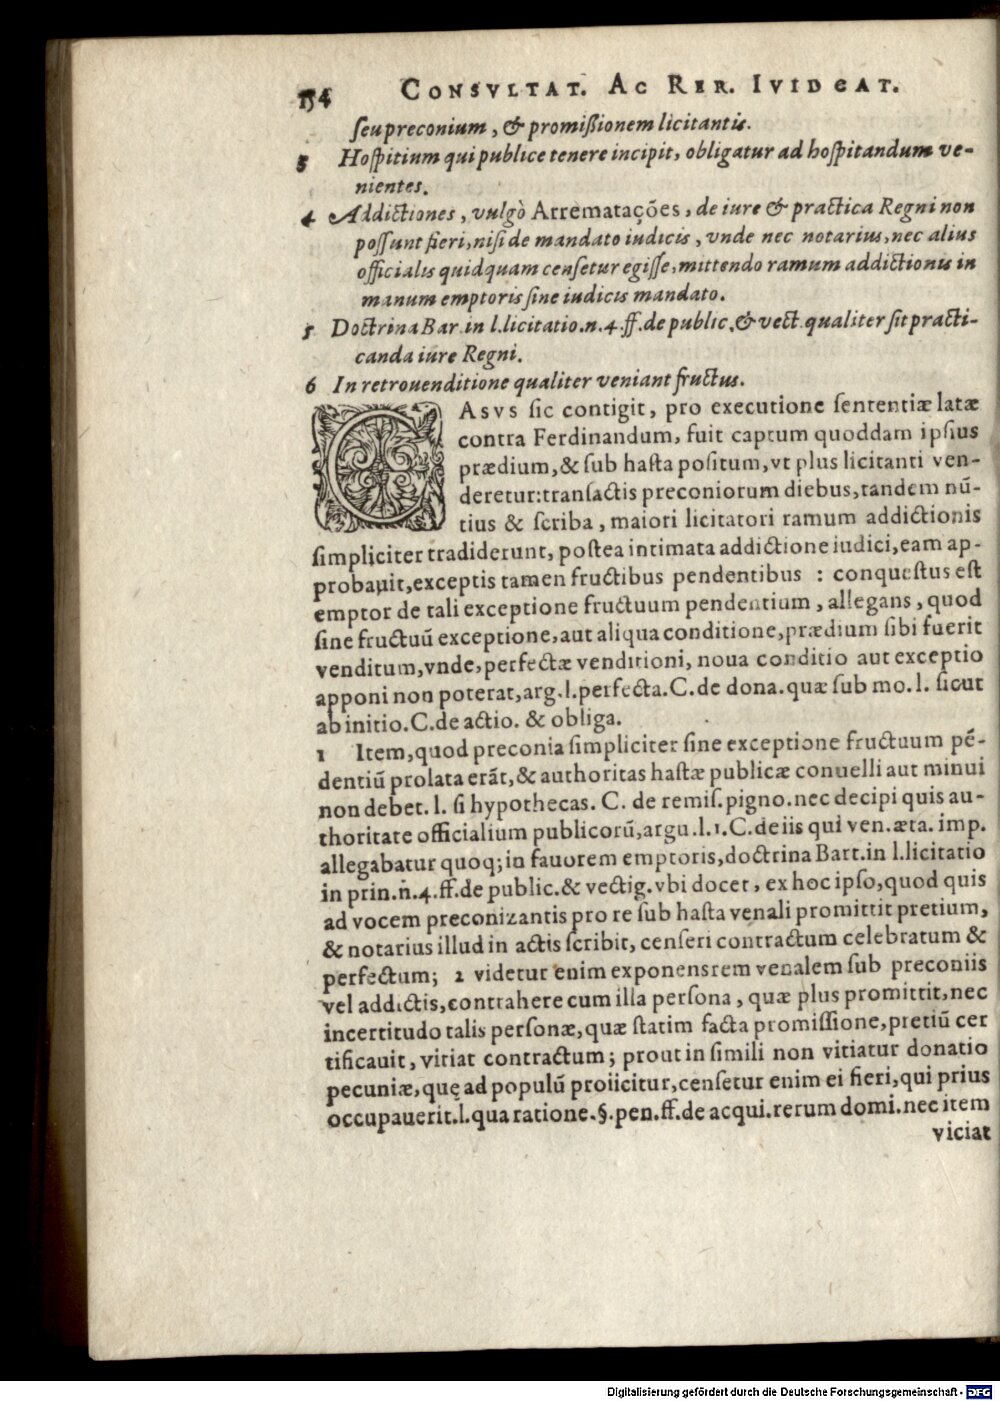 154 CONSVLTAT. AC RER. IVIDCAT.
seu preconium, & promißionem licitantis.
3 Hospitium qui publice tenere incipit, obligatur ad hospitandum ve-
nientes.
4 Addictiones, vulgò Arrematações, de iure & practica Regni non
possunt fieri, nisi de mandato iudicis, vnde nec notarius, nec alius
officialis quidquam censetur egisse, mittendo ramum addictionis in
manum emptoris sine iudicis mandato.
5 Doctrina Bar. in l. licitatio. n. 4. ff. de public. & vect. qualiter sit practi-
canda iure Regni.
6 In retrouenditione qualiter veniant fructus.
CASVS sic contigit, pro executione sententiæ latæ
contra Ferdinandum, fuit captum quoddam ipsius
prædium, & sub hasta positum, vt plus licitanti ven-
deretur: transactis preconiorum diebus, tandem nũ-
tius & scriba, maiori licitatori ramum addictionis
simpliciter tradiderunt, postea intimata addictione iudici, eam ap-
probauit, exceptis tamen fructibus pendentibus : conquestus est
emptor de tali exceptione fructuum pendentium, allegans, quod
sine fructuũ exceptione, aut aliqua conditione, prædium sibi fuerit
venditum, vnde, perfectæ venditioni, noua conditio aut exceptio
apponi non poterat, arg. l. perfecta. C. de dona. quæ sub mo. l. sicut
ab initio. C. de actio. & obliga.
1 Item, quod preconia simpliciter sine exceptione fructuum pẽ-
dentiũ prolata erãt, & authoritas hastæ publicæ conuelli aut minui
non debet. l. si hypothecas. C. de remis. pigno. nec decipi quis au-
thoritate officialium publicorũ, argu. l. 1. C. de iis qui ven. æta. imp.
allegabatur quoq; in fauorem emptoris, doctrina Bart. in l. licitatio
in prin. ñ. 4. ff. de public. & vectig. vbi docet, ex hoc ipso, quod quis
ad vocem preconizantis pro re sub hasta venali promittit pretium,
& notarius illud in actis scribit, censeri contractum celebratum &
perfectum; 2 videtur enim exponens rem venalem sub preconiis
vel addictis, contrahere cum illa persona, quæ plus promittit, nec
incertitudo talis personæ, quæ statim facta promissione, pretiũ cer
tificauit, vitiat contractum; prout in simili non vitiatur donatio
pecuniæ, quę ad populũ proiicitur, censetur enim ei fieri, qui prius
occupauerit. l. qua ratione. §. pen. ff. de acqui. rerum domi. nec item
viciat
Digitalisierung gefördert durch die Deutsche Forschungsgemeinschaft - DFG